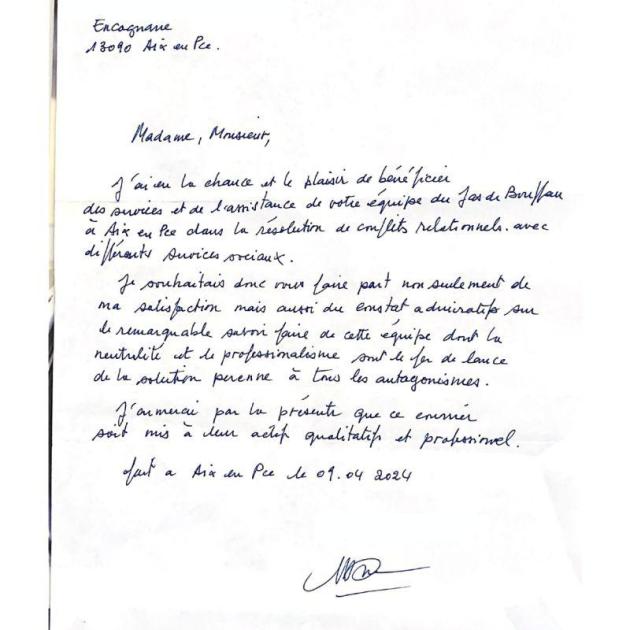 Encagnane
13090 Aix en Pce.
Madame, Monsieur,
J'ai eu la chance et le plaisir de bénéficier
des services et de l'assistance de votre équipe du Jas de Bouffan
à Aix en Pce dans la résolution de conflits relationnels. avec
différents services sociaux.
Je souhaitais donc vous faire part non seulement de
ma satisfaction mais aussi du constat admiratif sur
le remarquable savoir faire de cette équipe dont la
neutralité et le professionalisme sont le fer de lance
de la solution perenne à tous les antagonismes.
J'aimerai par la présente que ce courrier
soit mis à leur actif qualitatif et professionnel.
fait a Aix en Pce le 09.04 2024